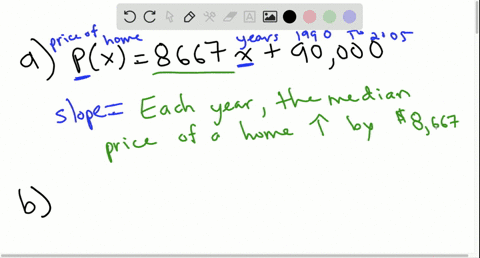 price of home years 1990 to 2005
a) P(x) = 8667 x + 90,000
slope = Each year, the median
price of a home ↑ by $8,667
b)